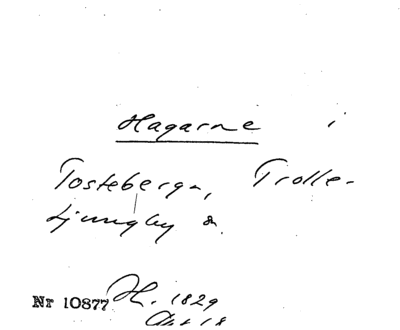 Hagarne i
Tosteberga, Trolle-
Ljungby
Nr 10877 1829